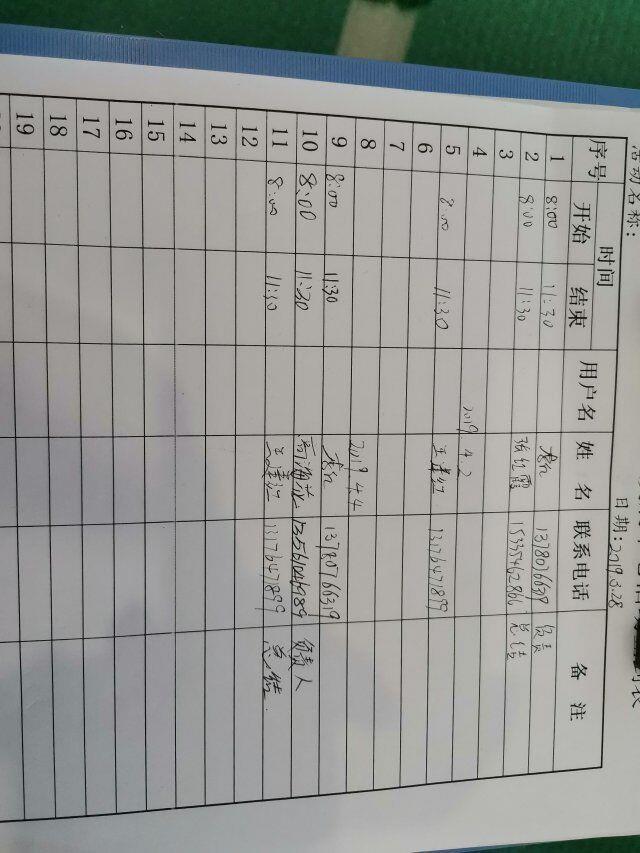 活动名称：
日期：2019.3.28
序号 时间 用户名 姓名 联系电话 备注
开始 结束
1 8:00 11:30 负责
2 8:00 11:30 张红霞 15335462866 总结
3
4 2019.4.2
5 8:00 11:30 13176471899
6
7
8 2019.4.4
9 8:00 11:30 13780766319
10 8:00 11:30 13561046989 负责人
11 8:00 11:30 13176471899 总结
12
13
14
15
16
17
18
19